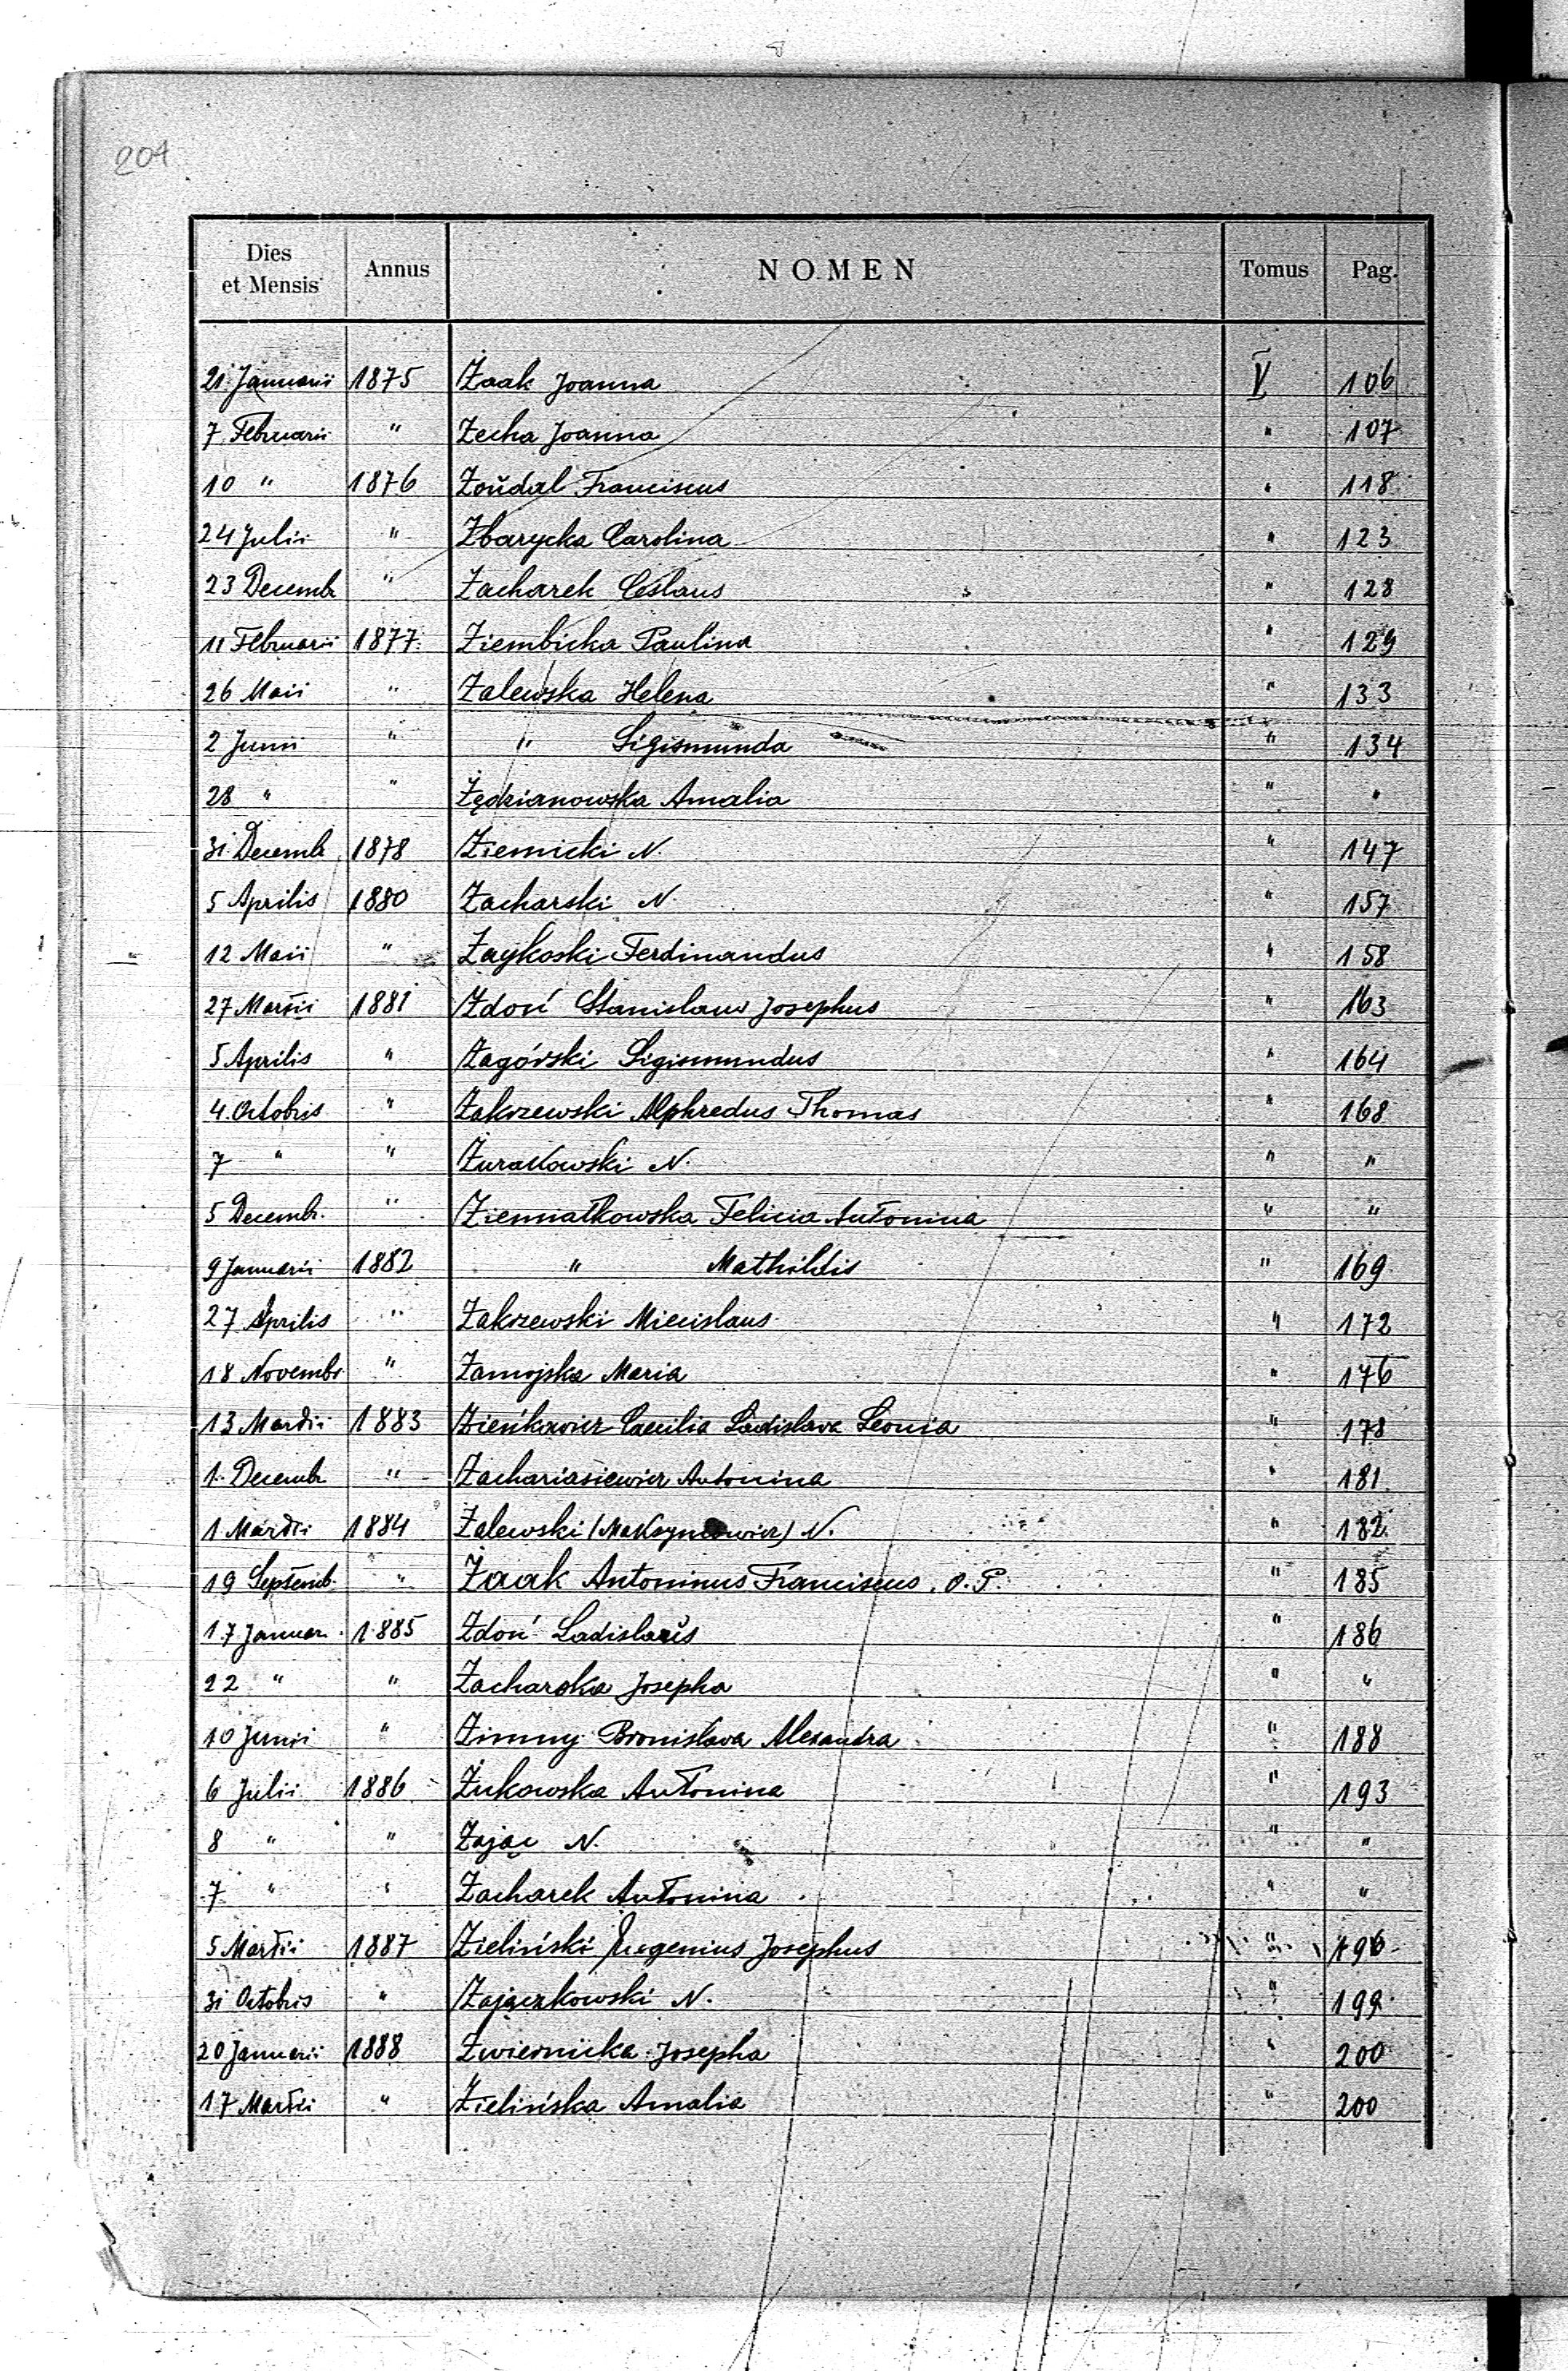 204
Dies et Mensis Annus NOMEN Tomus Pag.
21. Januarii 1875 Żaak Joanna V 106
7. Februarii " Zecha Joanna " 107
10 " 1876 Zoŭdal Franciscus " 118
24 Julii " Zbarycka Carolina " 123
23 Decemb " Zacharek Ceslaus " 128
11 Februarii 1877 Ziembicka Paulina " 129
26 Maii " Zalewska Helena " 133
2 Junii " " Sigismunda " 134
28 " " Żędzianowska Amalia " "
31. Decemb 1878 Ziemicki N. " 147
5 Aprilis 1880 Zacharski N. " 157
12 Maii " Zaykoski Ferdinandus " 158
27 Martii 1881 Zdoń Stanislaus Josephus " 163
5 Aprilis " Zagórski Sigismundus " 164
4. Octobris " Zakrzewski Alphredus Thomas " 168
7 " " Żurakowski N. " "
5 Decemb. " Ziemiałkowska Felicia Antonina " "
9 Januarii 1882 " Mathildis " 169
27 Aprilis " Zakrzewski Miecislaus " 172
18 Novemb. " Zamojska Maria " 176
13 Martii 1883 Zieńkowicz Caecilia Ladislava Leonia " 178
1. Decemb " Zachariasiewicz Antonina " 181
1 Martii 1884 Zalewski ( N. " 182
19 Septemb. " Żaak Antoninus Franciscus O.P. " 185
17 Januar. 1885 Zdoń Ladislaus " 186
22 " " Zacharska Josepha " "
10 Junii " Zimny Bronislava Alexandra " 188
6 Julii 1886 Żukowska Antonina " 193
8 " " Zając N. " "
7 " " Zacharek Antonina " "
5 Martii 1887 Zieliński Eugenius Josephus " 196
31 Octobris " Zajączkowski N. " 199
20 Januarii 1888 Zwiernicka Josepha " 200
17 Martii " Zielińska Amalia " 200